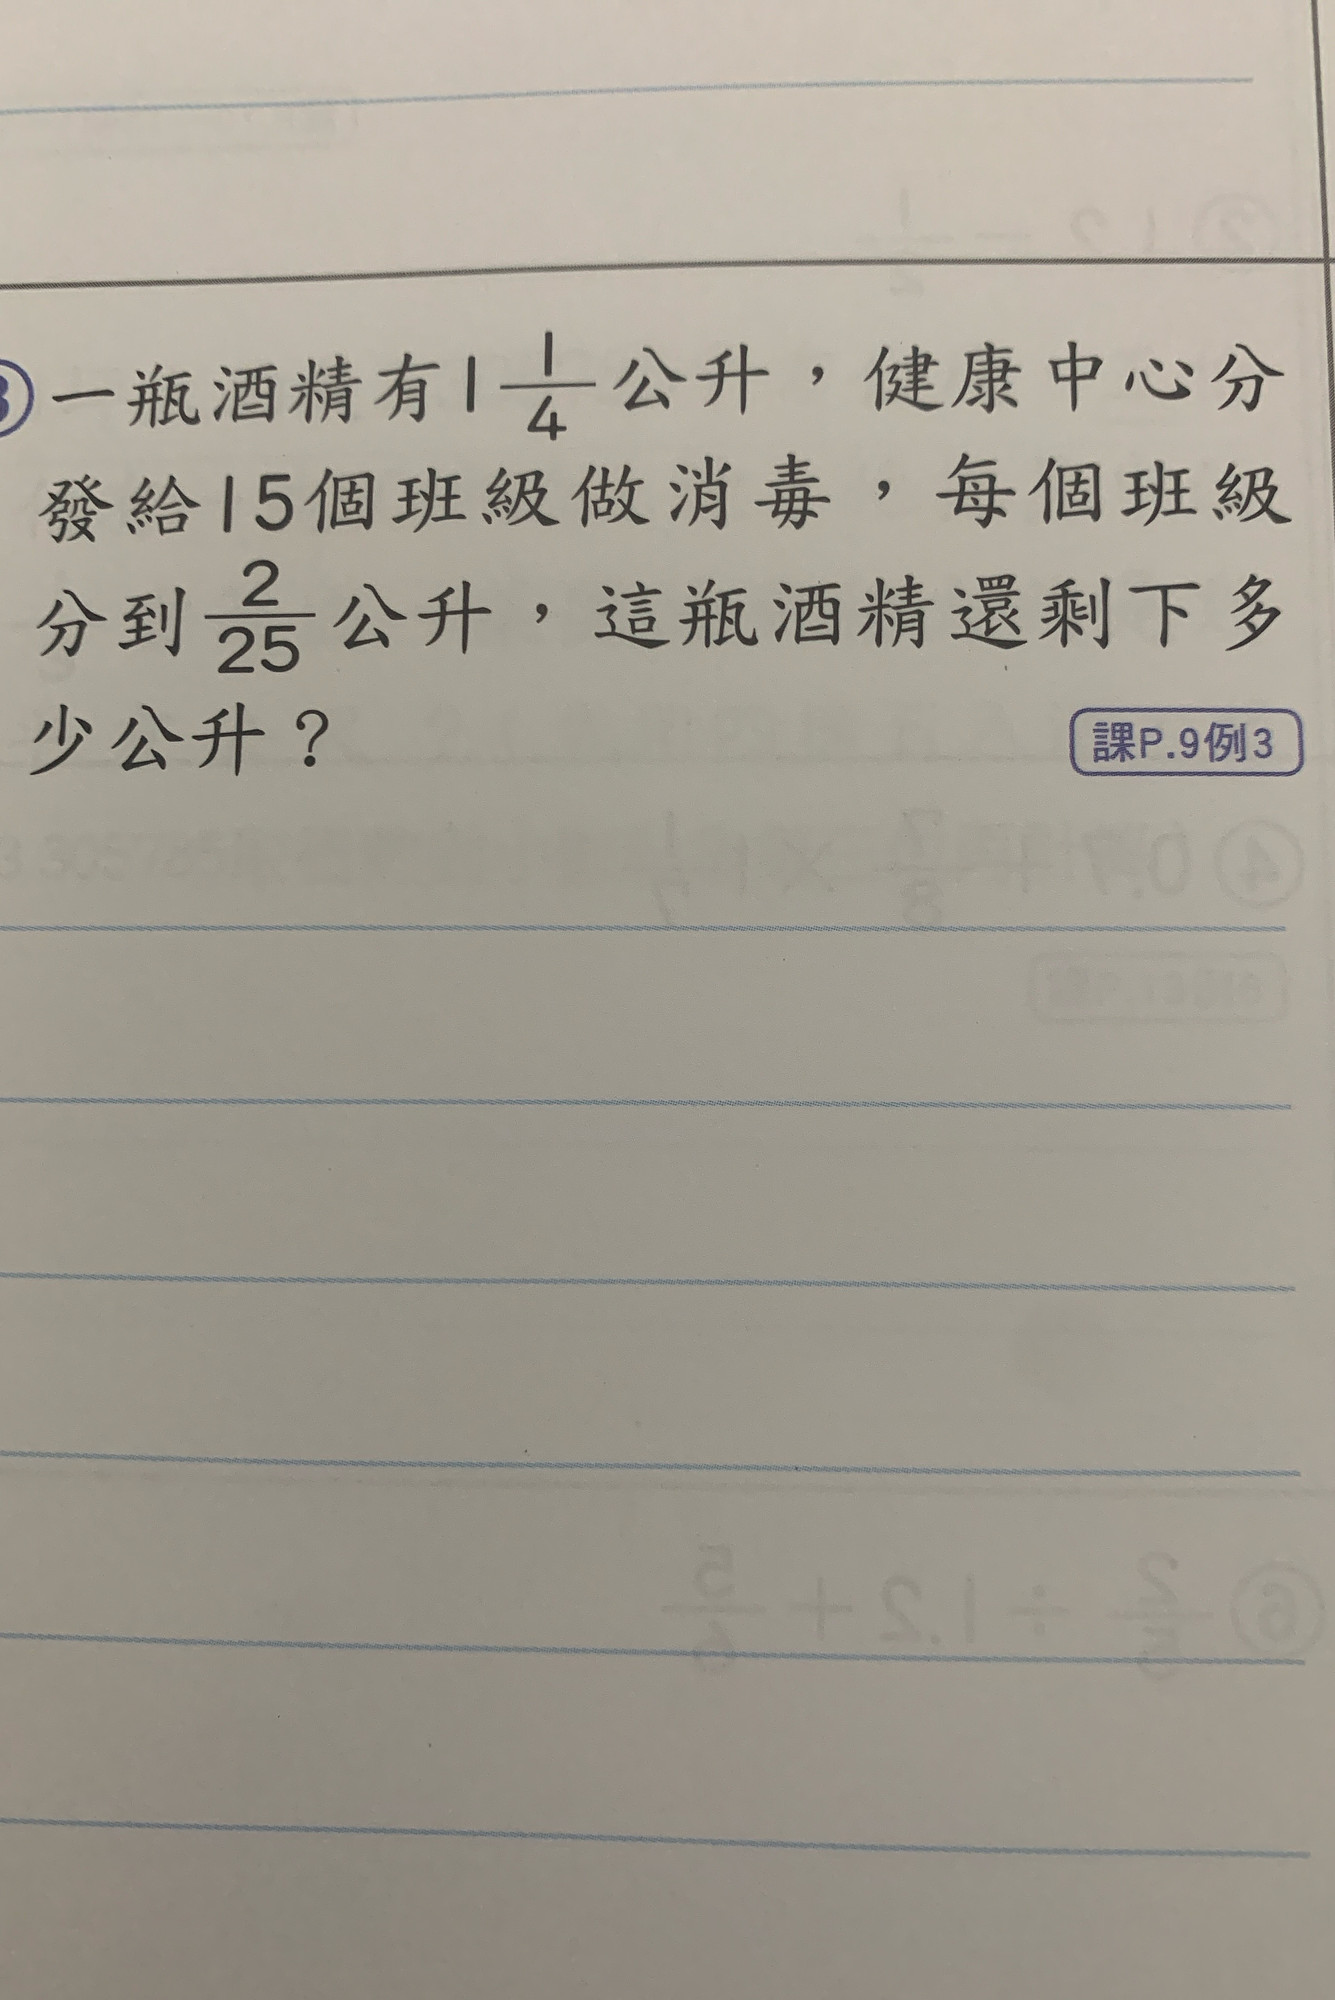 ③一瓶酒精有1 1/4公升，健康中心分
發給15個班級做消毒，每個班級
分到2/25公升，這瓶酒精還剩下多
少公升？
課P.9例3